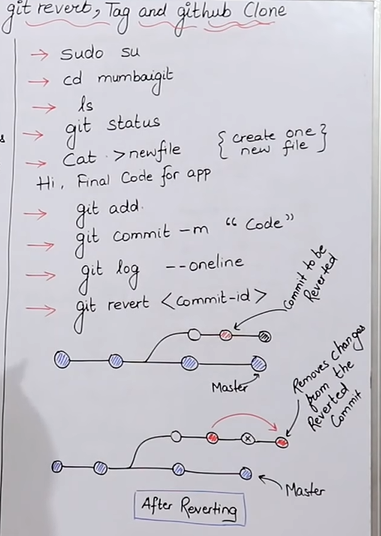 git revert, Tag and github Clone
→ sudo su
→ cd mumbaigit
→ ls
→ git status
→ Cat >newfile { create one new file }
Hi, Final Code for app
→ git add.
→ git commit -m "Code"
→ git log --oneline
→ git revert <commit-id>
Commit to be Reverted
Master
Removes changes from the Reverted Commit
Master
After Reverting